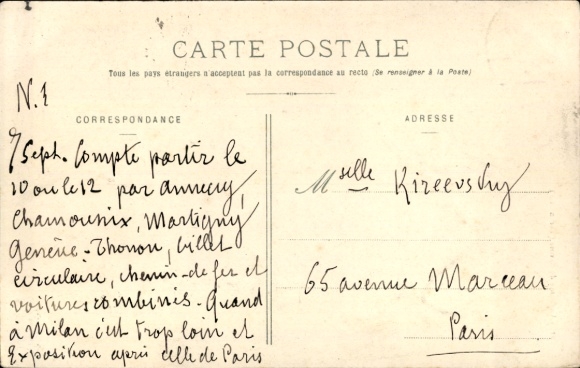 CARTE POSTALE
Tous les pays étrangers n'acceptent pas la correspondance au recto (Se renseigner à la Poste)
N. 1
CORRESPONDANCE
9/Sept. Compte partir le
10 ou le 12 par Annecy,
Chamounix, Martigny
Genève - Thonon, billet
circulaire, chemin-de fer et
voitures combinés. Quand
à Milan c'est trop loin et
Exposition après celle de Paris
ADRESSE
Mselle Kireevsky
65 avenue Marceau
Paris